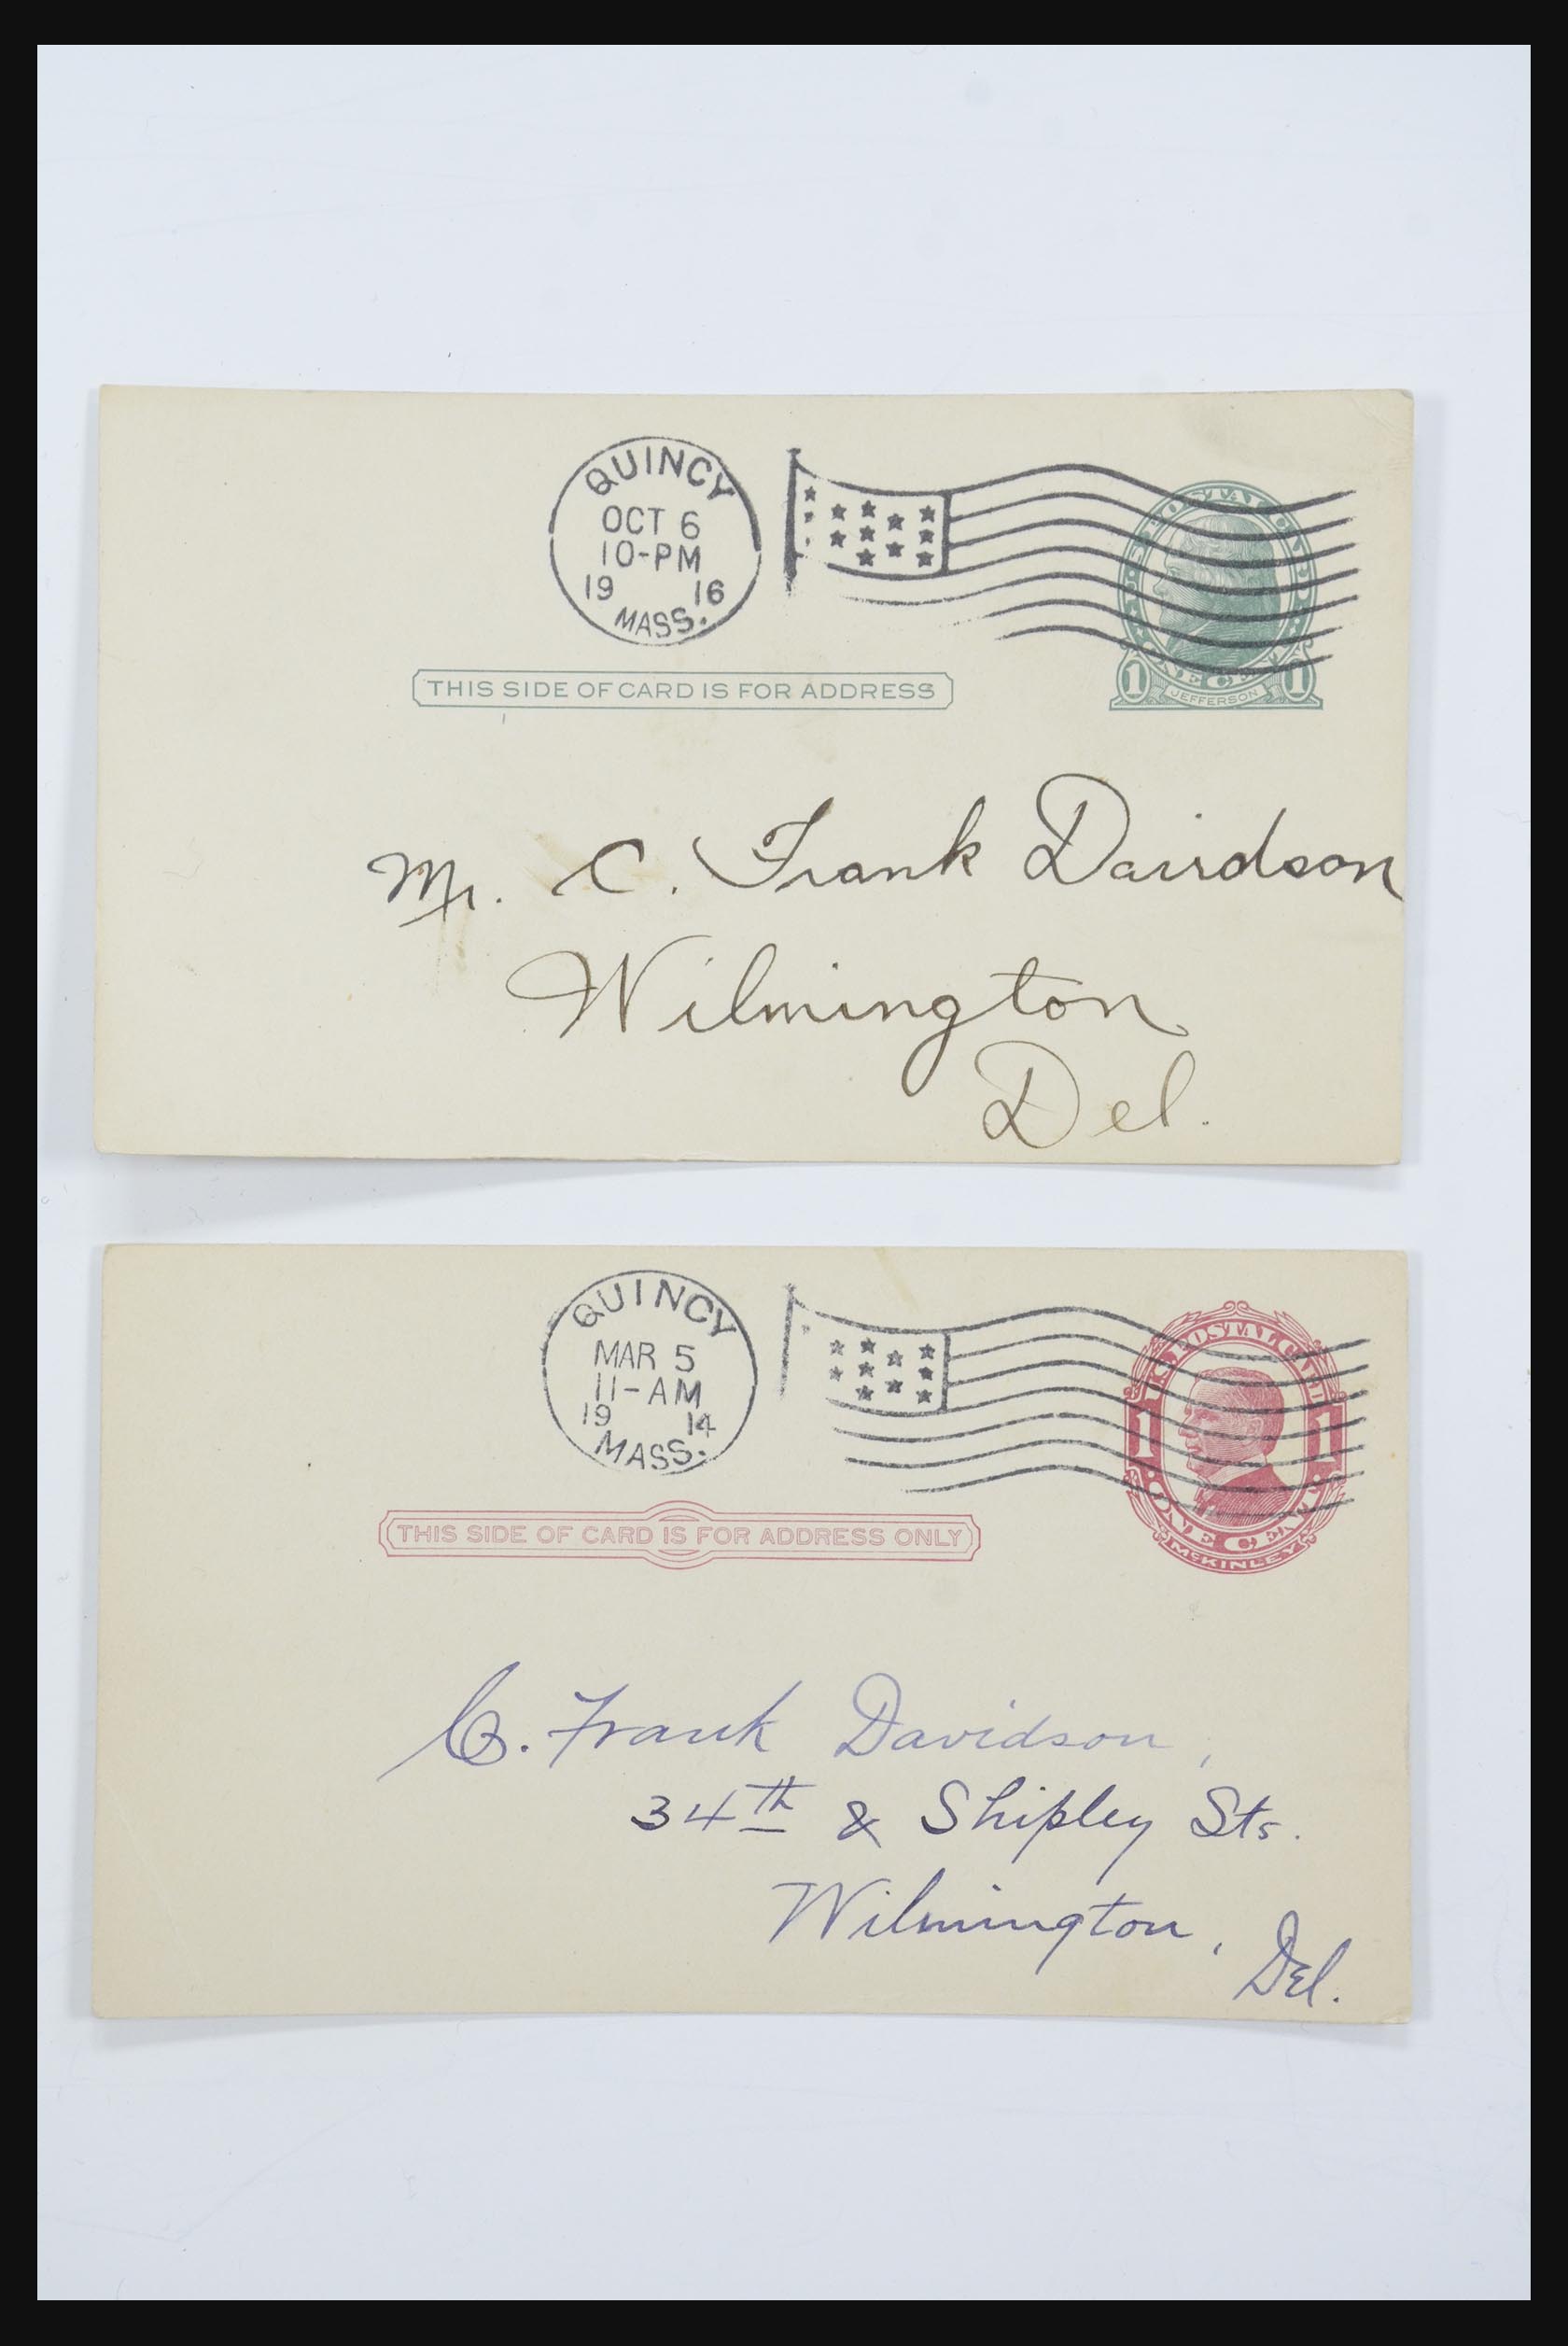 QUINCY
OCT 6
10-PM
19 16
MASS.
U.S. POSTAL CARD
ONE CENT
1 JEFFERSON 1
THIS SIDE OF CARD IS FOR ADDRESS
Mr. C. Frank Davidson
Wilmington
Del.
QUINCY
MAR 5
11-AM
19 14
MASS.
U.S. POSTAL CARD
1 1
ONE CENT
McKINLEY
THIS SIDE OF CARD IS FOR ADDRESS ONLY
C. Frank Davidson,
34th & Shipley Sts.
Wilmington, Del.